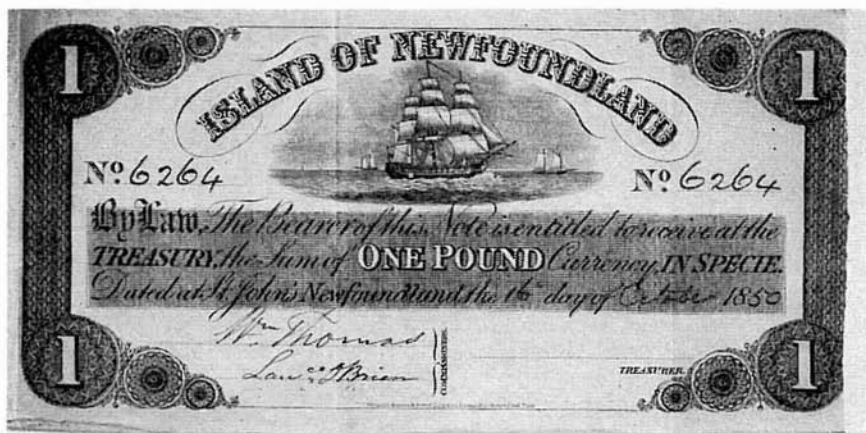 1 ISLAND OF NEWFOUNDLAND 1
No. 6264 No. 6264
By Law, The Bearer of this Note is entitled to receive at the
TREASURY, the Sum of ONE POUND Currency, IN SPECIE.
Dated at St. John's Newfoundland the 16th day of October 1850
Wm Thomas
Lawce O'Brien
COMMISSIONERS.
TREASURER.
1 1